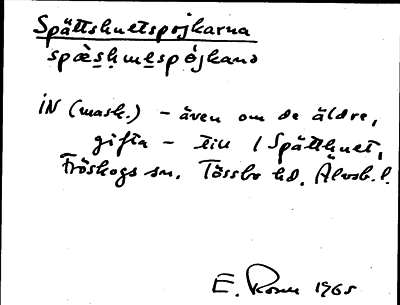 Spättshuetspojkarna
spæ̀s̱ẖmes̱pójkanɔ
IN (mask.) – även om de äldre,
gifta – till 1 Spätthuet,
Fröskogs sn. Tössbo hd. Älvsb. l.
E. 1965